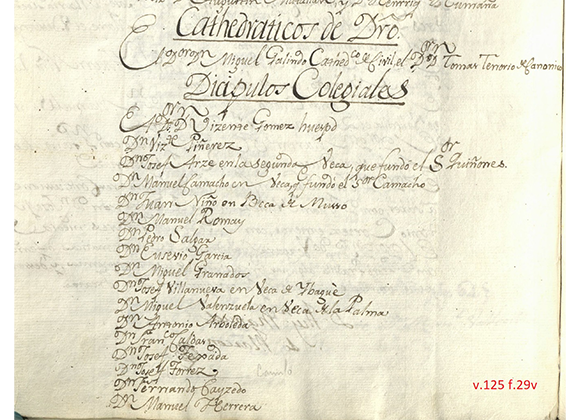 Cathedraticos de Dro.
El Dor Dn Miguel Galindo Cathedco de Civil, el Dr Dn Tomas Tenorio de Canonico
Dicipulos Colegiales
El Dr Dn Vizente Gomez huespd
Dn Vize Piñerez
Dn Josef Arze en la segunda Veca, que fundo el Sor Quiñones.
Dn Manuel Camacho en Veca q fundo el Sor Camacho
Dn Juan Niño en Beca de Muro
Dn Manuel Romay
Dn Pedro Salzar
Dn Eusevio Garcia
Dn Miguel Granados
Dn Josef Villanueva en Veca de Ybague
Dn Miguel Valenzuela en Veca de la Palma
Dn Antonio Arboleda
Dn Franco Caldas
Dn Josef Tejada
Dn Josef Torrez
Dn Fernando Cayzedo
Dn Manuel Herrera
v.125 f.29v